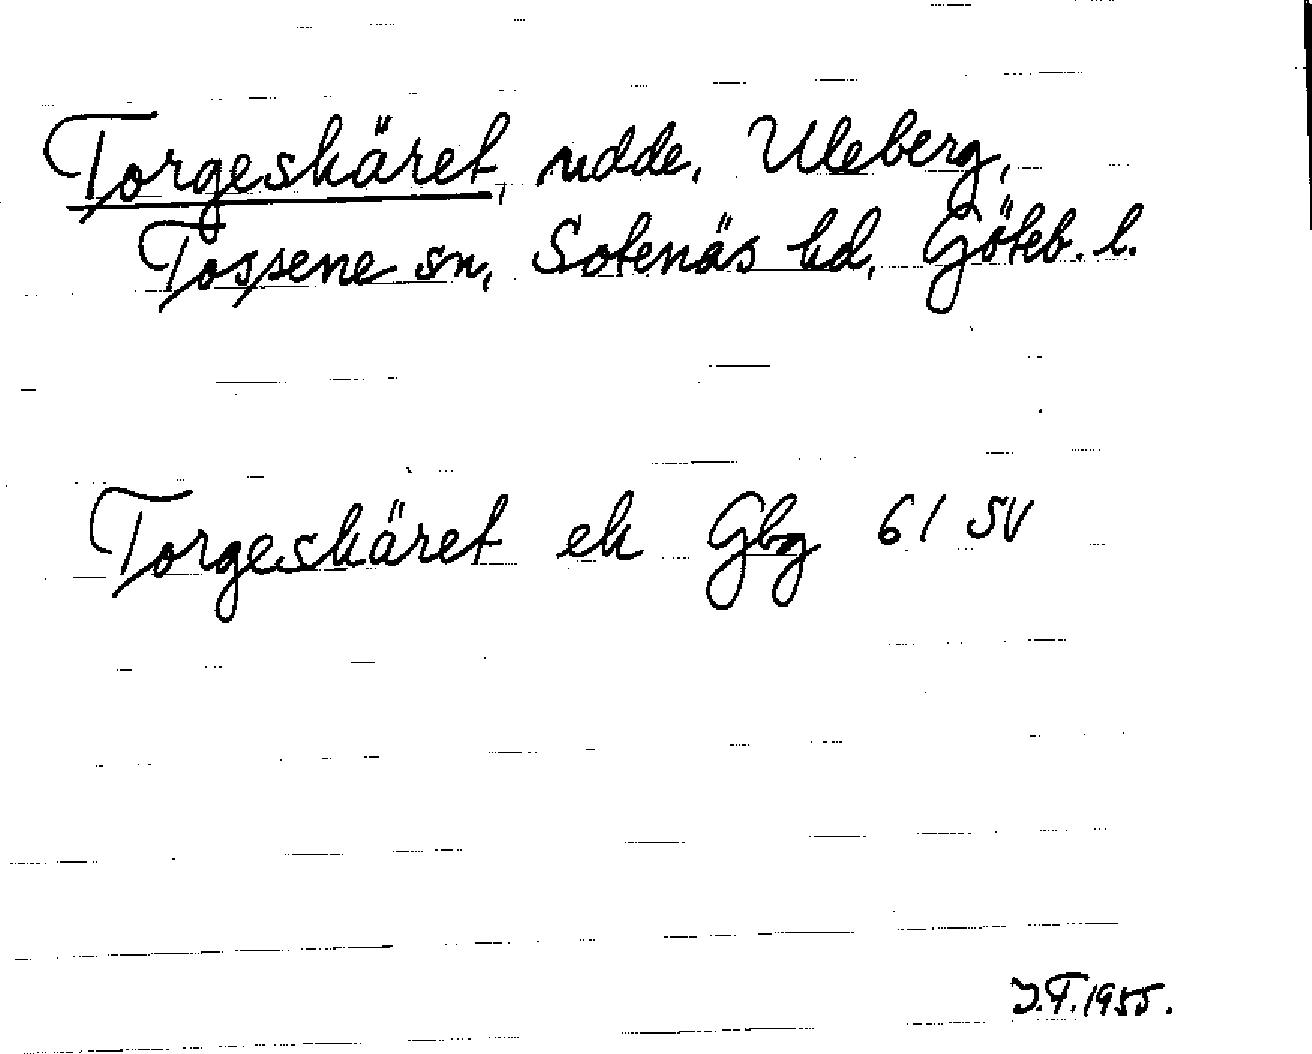 Torgeskäret, udde, Uleberg,
Tossene sn, Sotenäs hd, Göteb. l.
Torgeskäret ek Gbg 61 SV
J.F. 1955.